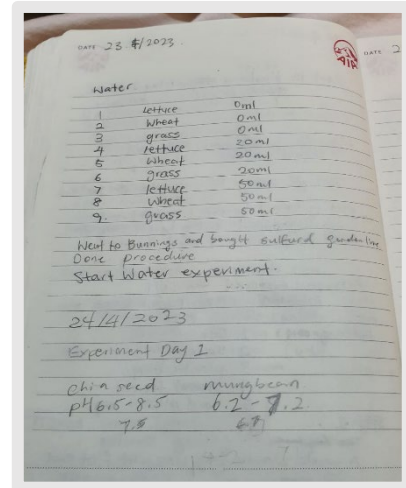 DATE 23 4/2023.
AIA
DATE 2
Water
1 lettuce 0ml
2 wheat 0ml
3 grass 0ml
4 lettuce 20ml
5 wheat 20ml
6 grass 20ml
7 lettuce 50ml
8 wheat 50ml
9. grass 50ml
Went to Bunnings and bought sulfurd
Done procedure
Start Water experiment.
24/4/2023
Experiment Day 1
chia seed mungbean
pH6.5-8.5 6.2-7.2
7.5